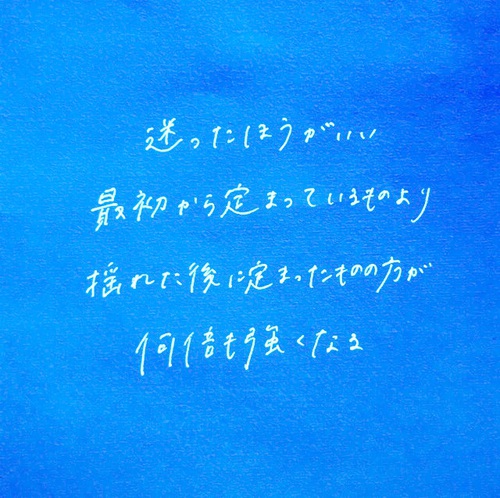 迷ったほうがいい
最初から定まっているものより
揺れた後に定まったものの方が
何倍も強くなる